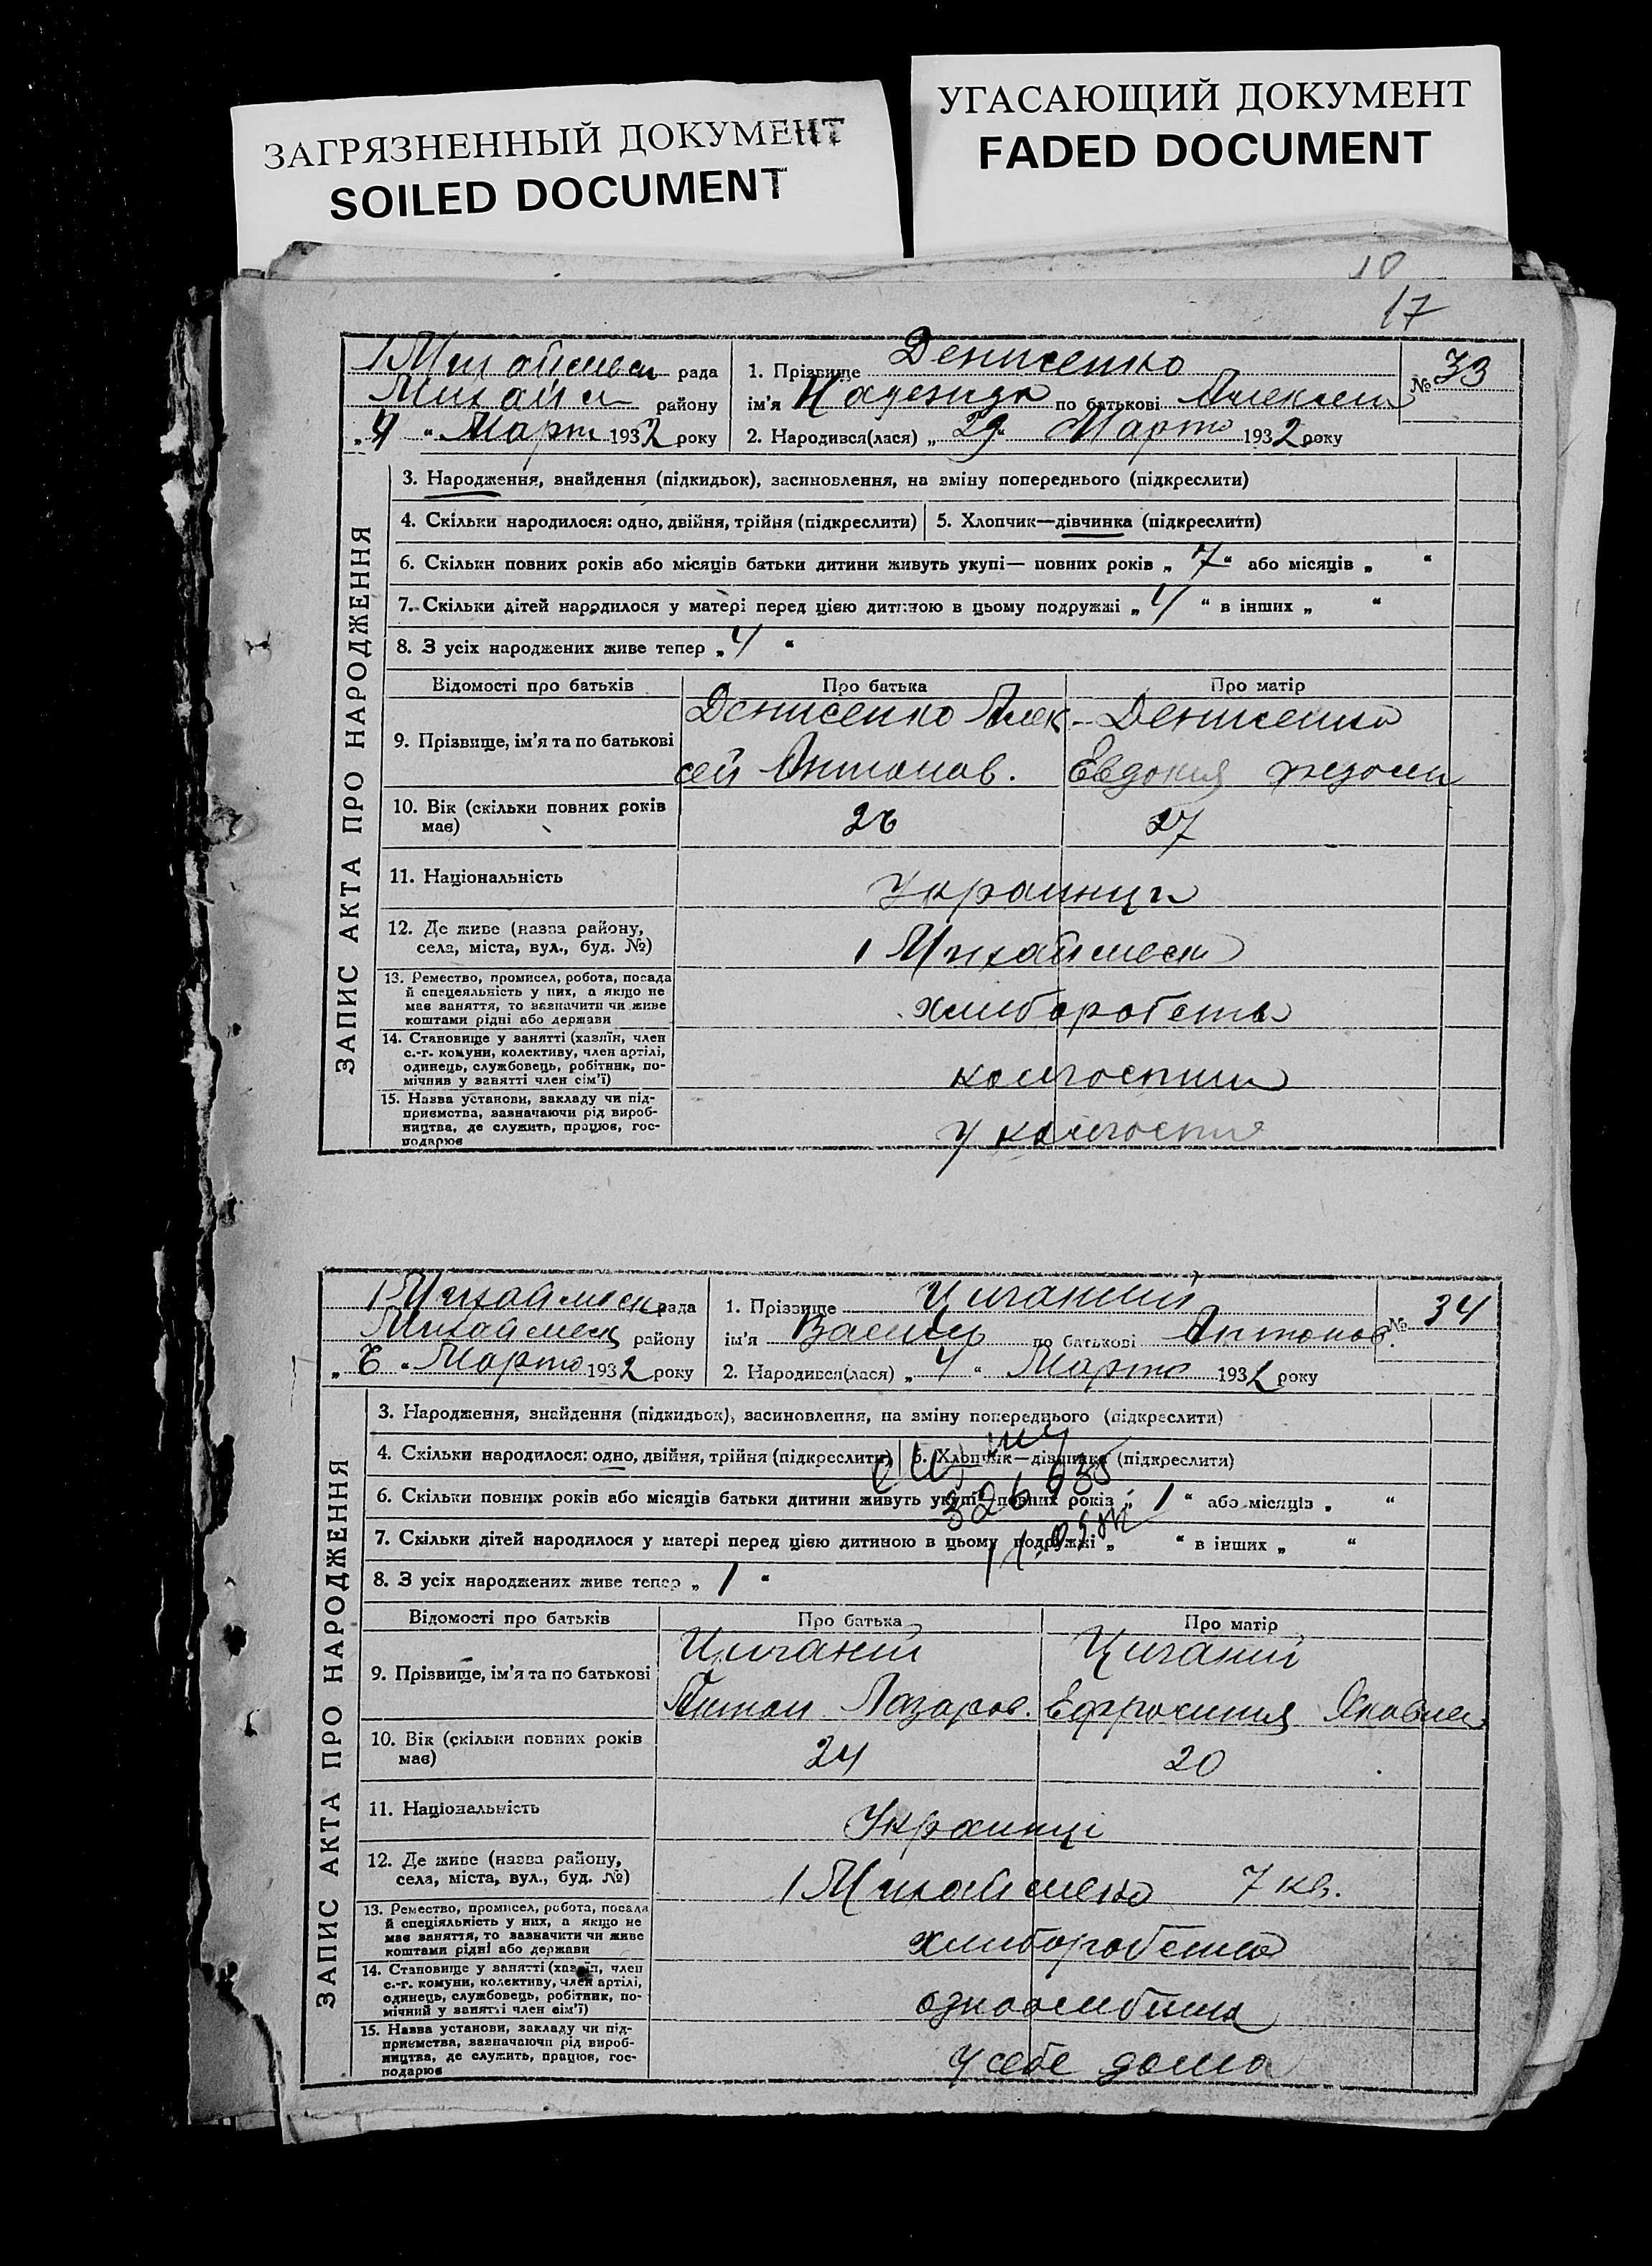 ЗАГРЯЗНЕННЫЙ ДОКУМЕНТ
SOILED DOCUMENT
УГАСАЮЩИЙ ДОКУМЕНТ
FADED DOCUMENT
18
17
ЗАПИС АКТА ПРО НАРОДЖЕННЯ
рада
району
„4“ Март 1932 року
1. Прізвище Денисенко
№ 33
ім'я Надежда по батькові
2. Народився(лася) „29“ Марта 1932 року
3. Народження, знайдення (підкидьок), засиновлення, на зміну попереднього (підкреслити)
4. Скільки народилося: одно, двійня, трійня (підкреслити)
5. Хлопчик—дівчинка (підкреслити)
6. Скільки повних років або місяців батьки дитини живуть укупі— повних років „7“ або місяців „ “
7. Скільки дітей народилося у матері перед цією дитиною в цьому подружжі „4“ в інших „ “
8. З усіх народжених живе тепер „4“
Відомості про батьків Про батька Про матір
9. Прізвище, ім'я та по батькові
Денисенко Алек-
сей Антонов.
Денисенко
Евдокия
10. Вік (скільки повних років
має)
26 27
11. Національність
Украинци
12. Де живе (назва району,
села, міста, вул., буд. №)
1 Михайловск
13. Ремество, промисел, робота, посада
й спецеяльність у них, а якщо не
має заняття, то зазначити чи живе
коштами рідні або держави
хлиборобство
14. Становище у занятті (хазяїн, член
с.-г. комуни, колективу, член артілі,
одинець, службовець, робітник, по-
мічник у занятті член сім'ї)
15. Назва установи, закладу чи під-
приємства, зазначаючи рід вироб-
ництва, де служить, працює, гос-
подарює
у колгоспи
ЗАПИС АКТА ПРО НАРОДЖЕННЯ
рада
району
„6“ Марта 1932 року
1. Прізвище Циганий
№ 34
ім'я Василь по батькові Антонов.
2. Народився(лася) „4“ Марта 1932 року
3. Народження, знайдення (підкидьок), засиновлення, на зміну попереднього (підкреслити)
4. Скільки народилося: одно, двійня, трійня (підкреслити)
5. Хлопчик—дівчинка (підкреслити)
6. Скільки повних років або місяців батьки дитини живуть укупі—повних років „1“ або місяців „ “
7. Скільки дітей народилося у матері перед цією дитиною в цьому подружжі „ “ в інших „ “
8. З усіх народжених живе тепер „1“
Відомості про батьків Про батька Про матір
9. Прізвище, ім'я та по батькові
Циганий
Антон Лазаров.
Циганий
Ефросиния
10. Вік (скільки повних років
має)
24 20
11. Національність
Украинці
12. Де живе (назва району,
села, міста, вул., буд. №)
1 Михайловка 7 кв.
13. Ремество, промисел, робота, посада
й спеціяльність у них, а якщо не
має заняття, то зазначити чи живе
коштами рідні або держави
хлиборобство
14. Становище у занятті (хазяїн, член
с.-г. комуни, колективу, член артілі,
одинець, службовець, робітник, по-
мічний у занятті член сім'ї)
15. Назва установи, закладу чи під-
приємства, зазначаючи рід вироб-
ництва, де служить, працює, гос-
подарює
у себе дома